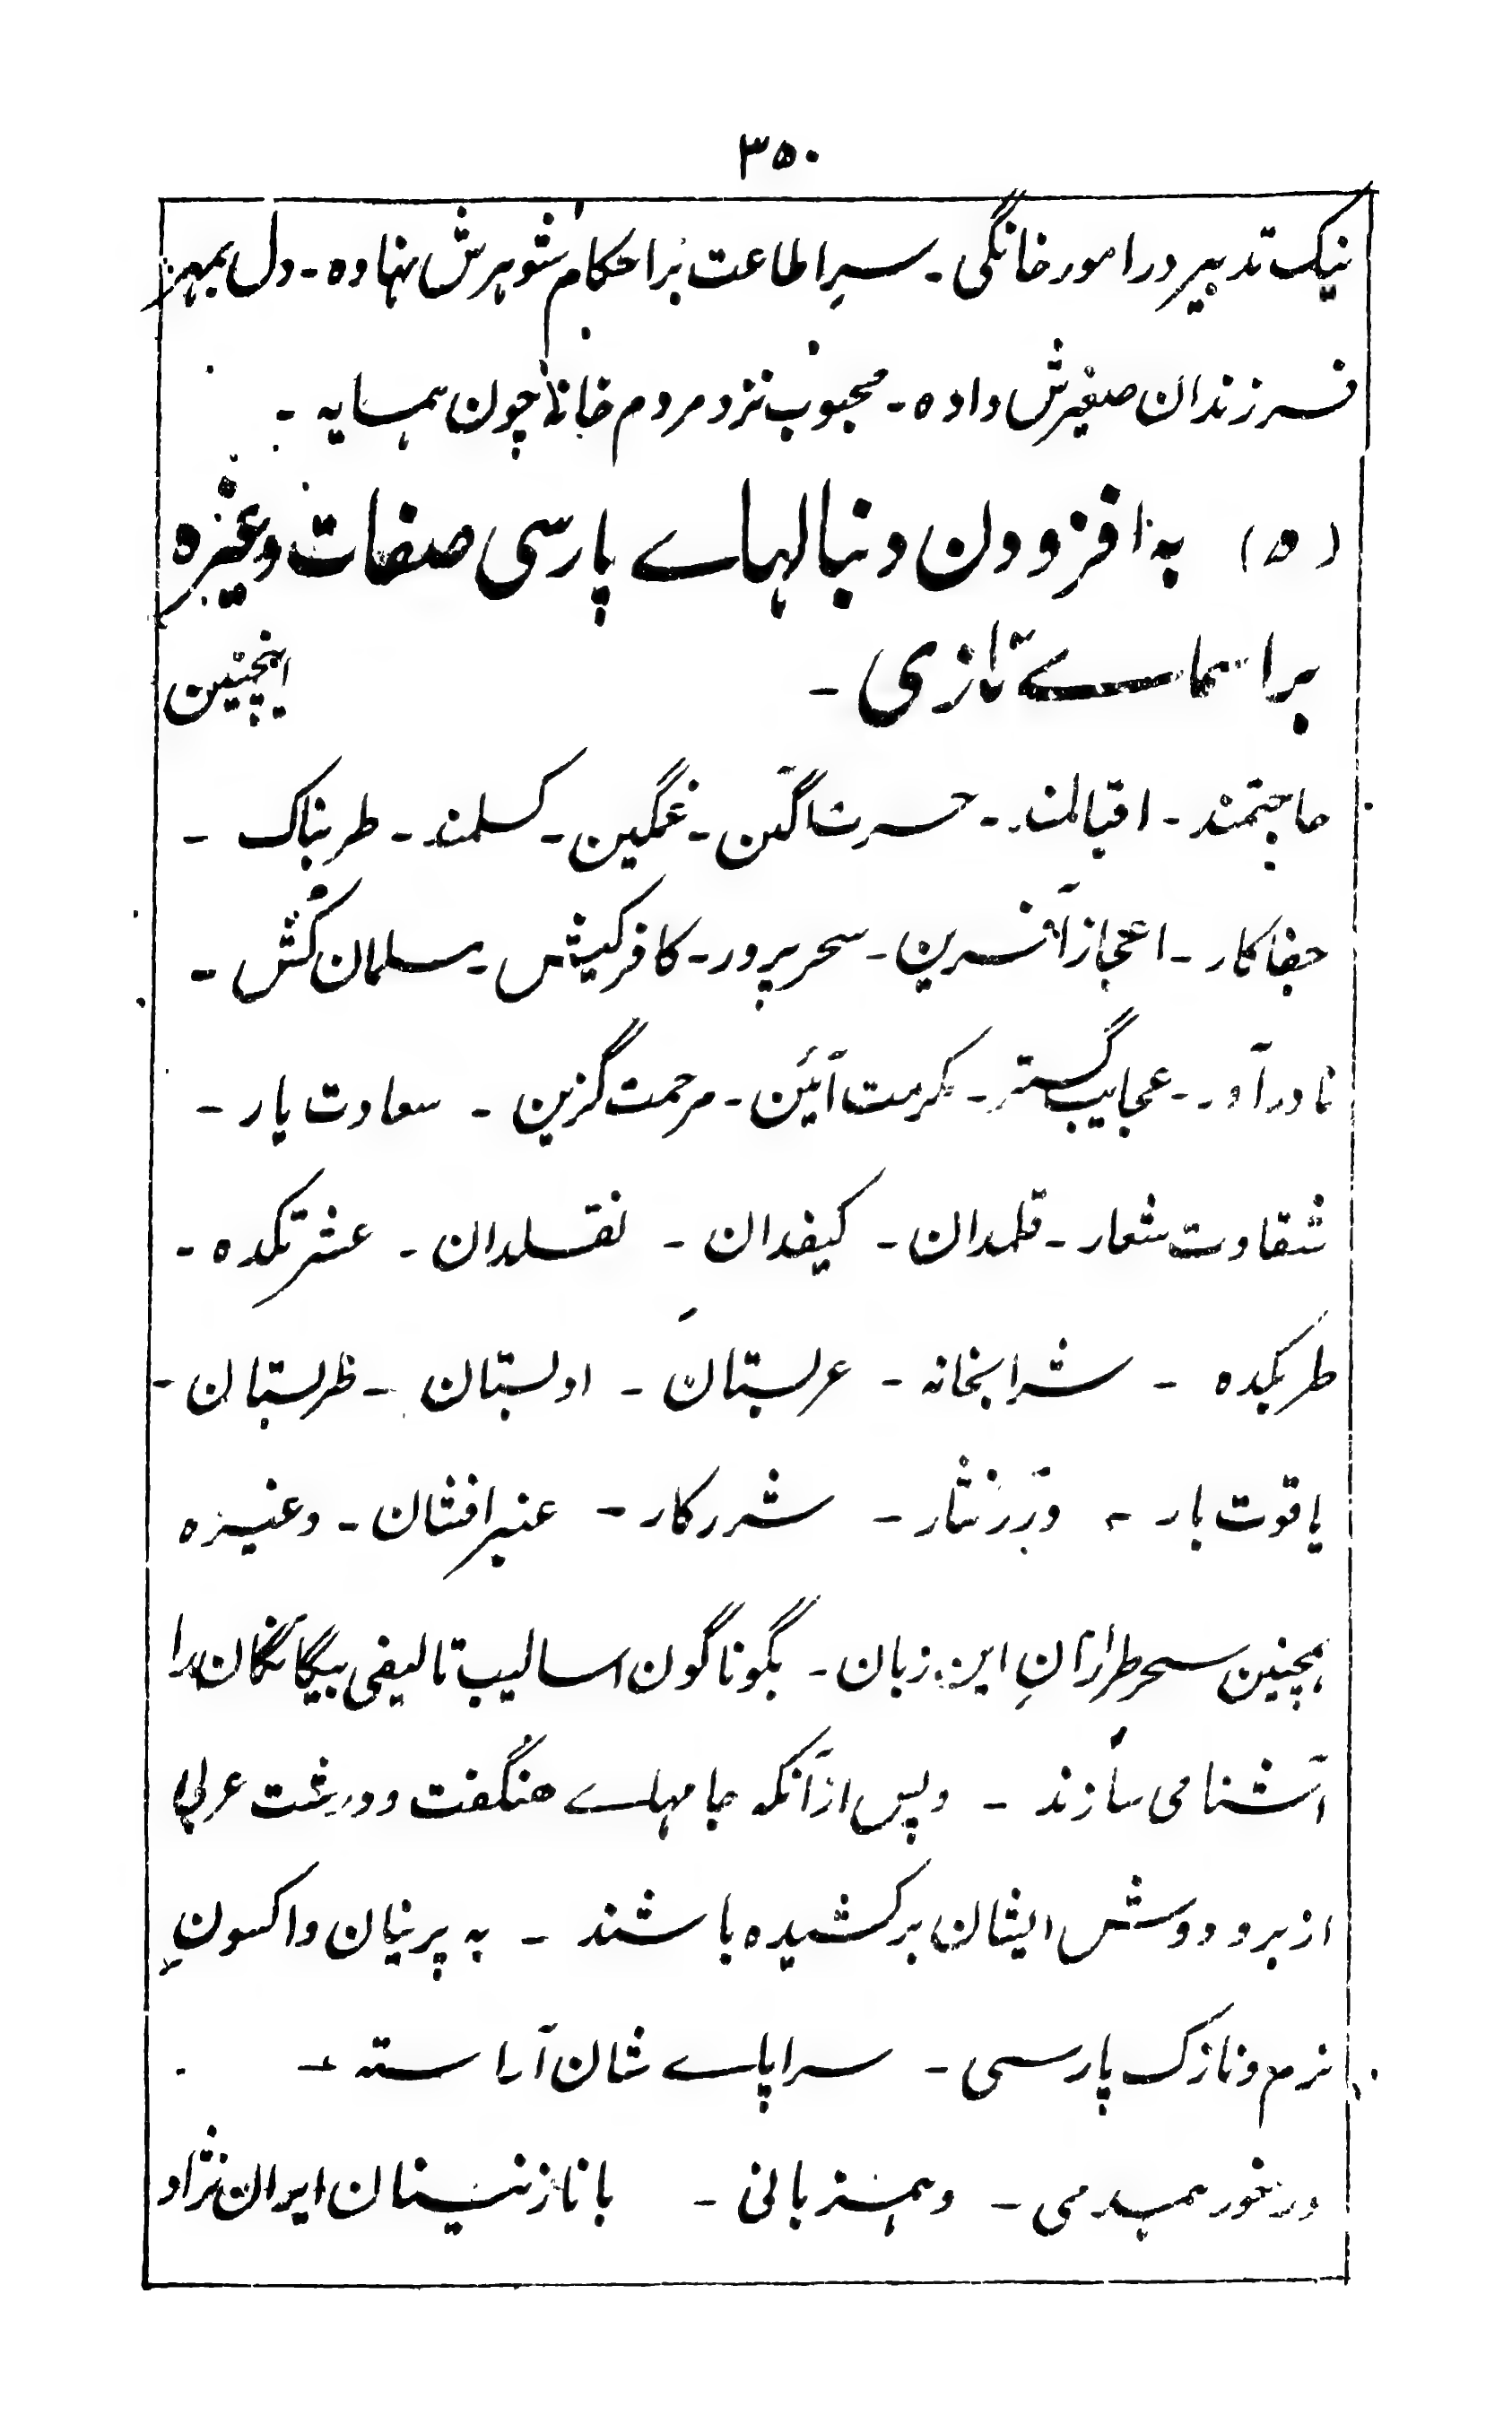 ۳۵۰
نیک تدبیر در امور خانگی - سرِ اطاعت بر احکام شوهرش نهاده - دل بمهر
فرزندان صغیرش داده - محبوب نزد مردم خانه چون همسایه -
(۵) به افزودن دنبالهاے پارسی صفات وغیره
بر اسماے تازی - اینچنین
حاجتمند - اقبالمند - حسرت آگین - غمگین - کسلمند - طربناک -
جفاکار - اعجاز آفرین - سحر پرور - کافر کیش - مسلمان کُش -
نادر آور - عجایب گستر - مکرمت آئین - مرحمت گزین - سعادت یار -
شقاوت شعار - قلمدان - کیفدان - نقلدان - عشرتکده -
طربکده - شرابخانه - عربستان - ادبستان - ظربستان -
یاقوت بار - نثار - شررکار - عنبر افشان - وغیره
همچنین سحر طرازانِ این زبان - بگوناگون اسالیب تالیفی بیگانگان را
آشنا می سازند - و پس از آنکه جامهاے هنگفت و درشت عربی
از بر و دوش ایشان برکشیده باشند - به پرنیان و اکسونِ
نرم و نازک پارسی - سراپاے شان آراسته -
در خور همدمی - و همزبانی - با نازنینان ایران نژاد